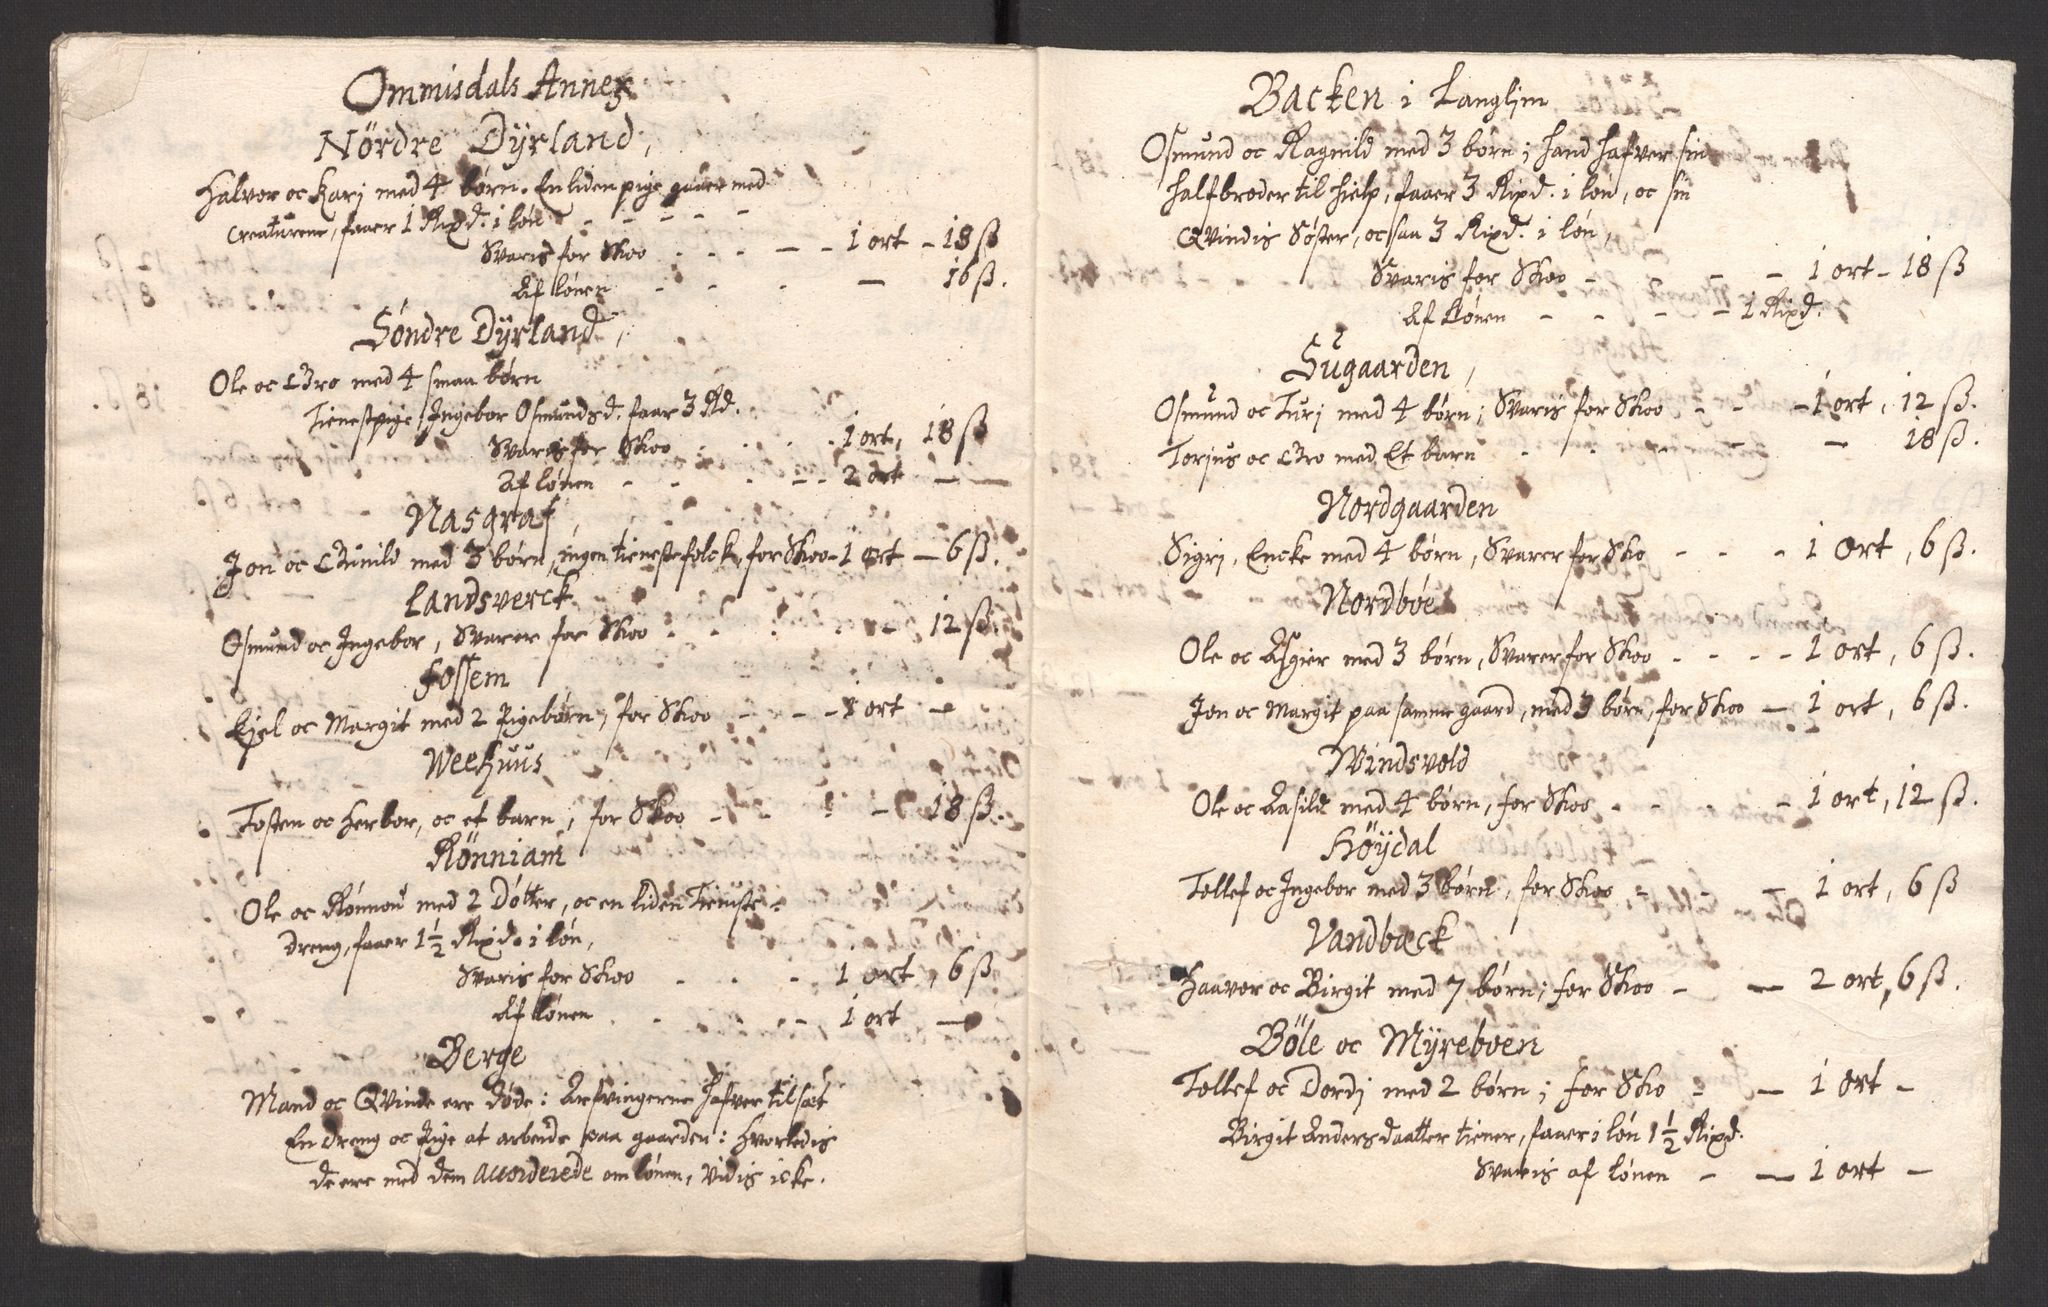 Ommisdals Annex
Nördre Dÿrland,
Halvor oc Karj med 4 børn. En liden pige gaaer med
creaturene, faaer 1 Rixd. i løn - - - - -
Svaris for Skoo - - - - - 1 ort - 18 ß
Af lønen - - - - 16 ß.
Söndre Dÿrland,
Ole oc Gro med 4 smaa børn
Tienestpige, Ingebor Osmundsd. faar 3 Rd.
Svaris for Skoo - - - - 1 ort, 18 ß
Af lønen - - - - - 2 ort - -
Nasgraf,
Jon oc Gunild med 3 børn, ingen tienestefolck, for Skoo - 1 ort - 6 ß.
Landsverck
Osmund oc Ingebor, Svarer for Skoo - - - - - 12 ß.
Fossem
Kjel oc Margit med 2 Pigebørn, for Skoo - - - 1 ort -
Weehuus
Tosten oc Herbor, oc et barn, for Skoo - - - - 18 ß.
Rönniam
Ole oc Rønnou med 2 Døtter, oc en liden Tieniste-
dreng, faaer 1½ Rixd. i løn,
Svaris for Skoo - - - 1 ort, 6 ß
Af lønen - - - - 1 ort -
Berge
Mand oc Qvinde ere døde: Arfvingerne hafver tilsæt
En dreng oc Pige at arbeide paa gaarden: hvorledis
de ere med dem accorderede om lønen, vidis icke.
Backen i Langlim
Osmund oc Ragnild med 3 børn; hand hafver sin
halfbroder til hielp, faaer 3 Rixd. i løn, oc sin
Qvindis Søster, oc saa 3 Rixd. i løn,
Svaris for Skoo - - - 1 ort - 18 ß
Af Lønen - - - - - 1 Rixd.
Sugaarden,
Osmund oc Turj med 4 børn; Svaris for Skoo - - - 1 ort, 12 ß.
Torjus oc Gro med Et barn - - - - - 18 ß.
Nordgaarden
Sigrj, Encke med 4 børn, Svarer for Sko - - - 1 ort, 6 ß.
Nordbøe
Ole oc Asgier med 3 børn, Svarer for Skoo - - - - 1 ort, 6 ß.
Jon oc Margit paa samme gaard, med 3 børn, for Skoo - 1 ort, 6 ß.
Windsvold
Ole oc Aasild med 4 børn, for Skoo - - - - 1 ort, 12 ß.
Höÿdal
Tollef oc Ingebor med 3 børn, for Skoo - - - 1 ort, 6 ß
Vandbæck
Haavor oc Birgit med 7 børn; for Skoo - - 2 ort, 6 ß.
Böle oc Mÿreboen
Tollef oc Dordj med 2 børn; for Sko - - 1 ort -
Birgit Andersdaatter tiener, faaer i løn 1½ Rixd.
Svaris af lønen - - 1 ort -